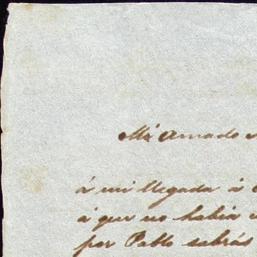 Mi amado
á mi llegada á
á que no habia
por Pablo sabrás